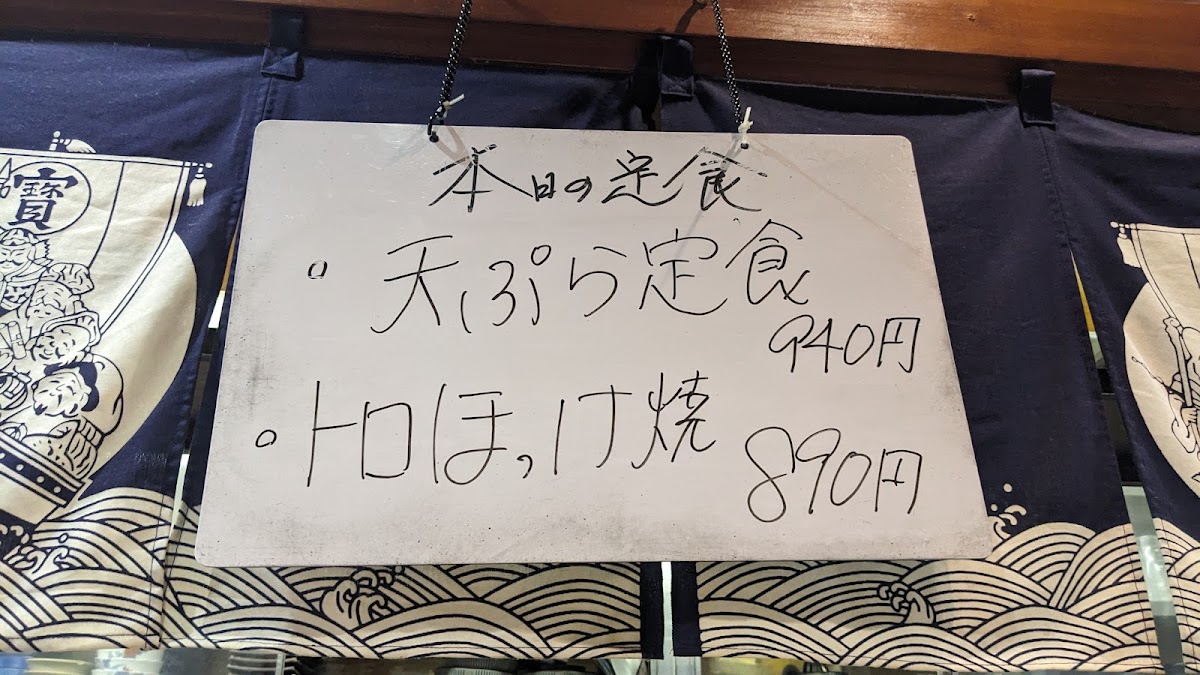 本日の定食
。天ぷら定食
940円
。トロほっけ焼
890円
寳